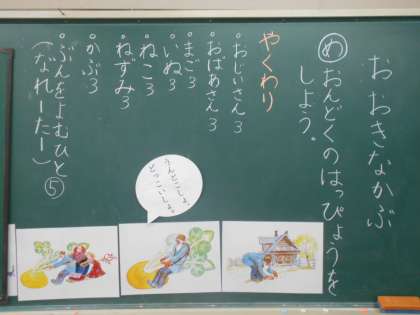 おおきなかぶ
めおんどくのはっぴょうを
しよう。
やくわり
・おじいさん3
・おばあさん3
・まご3
・いぬ3
・ねこ3
・ねずみ3
・かぶ3
・ぶんをよむひと⑤
(なれーたー)
うんとこしょ、
どっこいしょ。